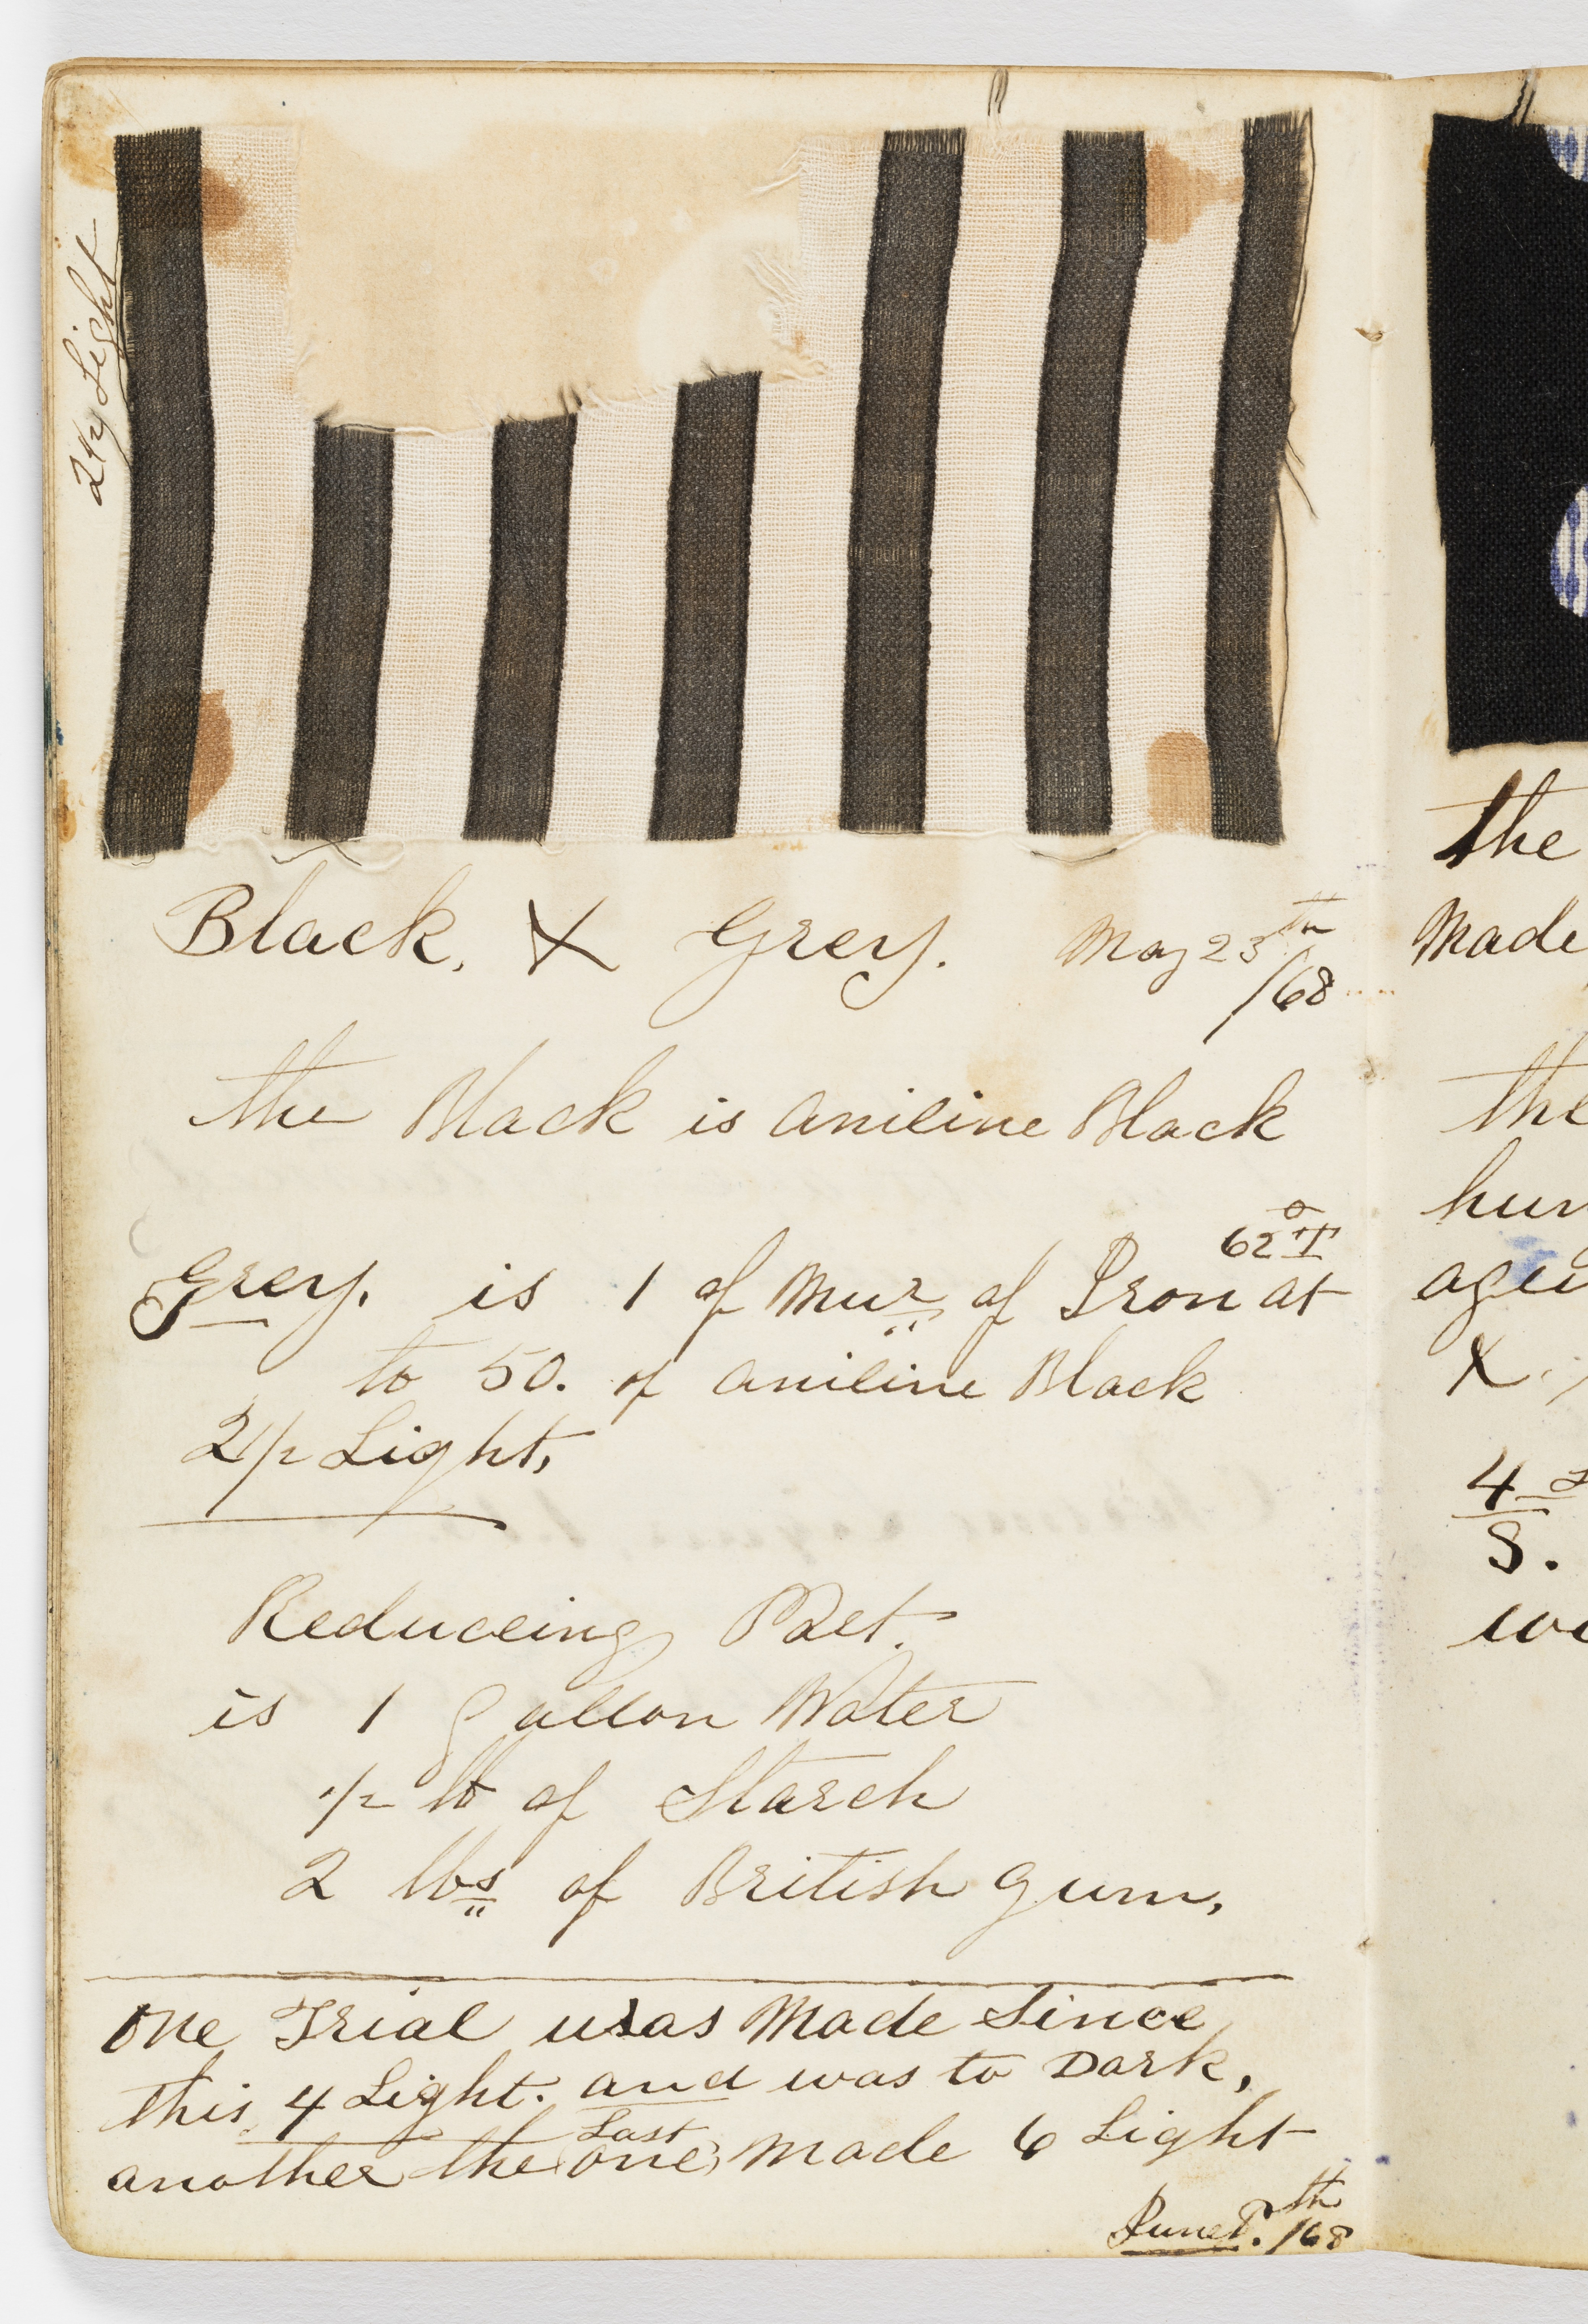 2 1/2 Light
Black, X Grey. May 23th
/68
the Black is aniline Black
62°T
Grey. is 1 of Mur of Iron at
to 50. of aniline Black
2 1/2 Light,
Reduceing
is 1 gallon Water
1/2 lb of Starch
2 lbs of British gum,
One Trial was Made Since
this 4 Light. and was to Dark,
Last
another the one, made 6 Light
th
June /68
the
Made
the
X.
4
S.